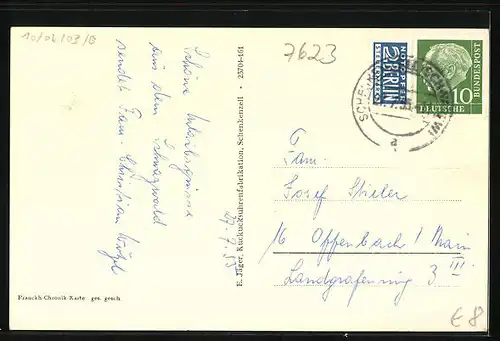 10/02/03/B
7623
Schöne Urlaubsgrüsse
aus dem Schwarzwald
sendet Fam. Christian
27.7.55
E. Jäger, Kuckucksuhrenfabrikation, Schenkenzell · 25704-161
Franckh-Chronik-Karte ges. gesch.
NOTOPFER
2 BERLIN
STEUERMARKE
DEUTSCHE
BUNDESPOST
10
SCHENKENZELL
a
Fam.
Josef Stieler
16 Offenbach / Main
Landgrafenring 3 III
€8